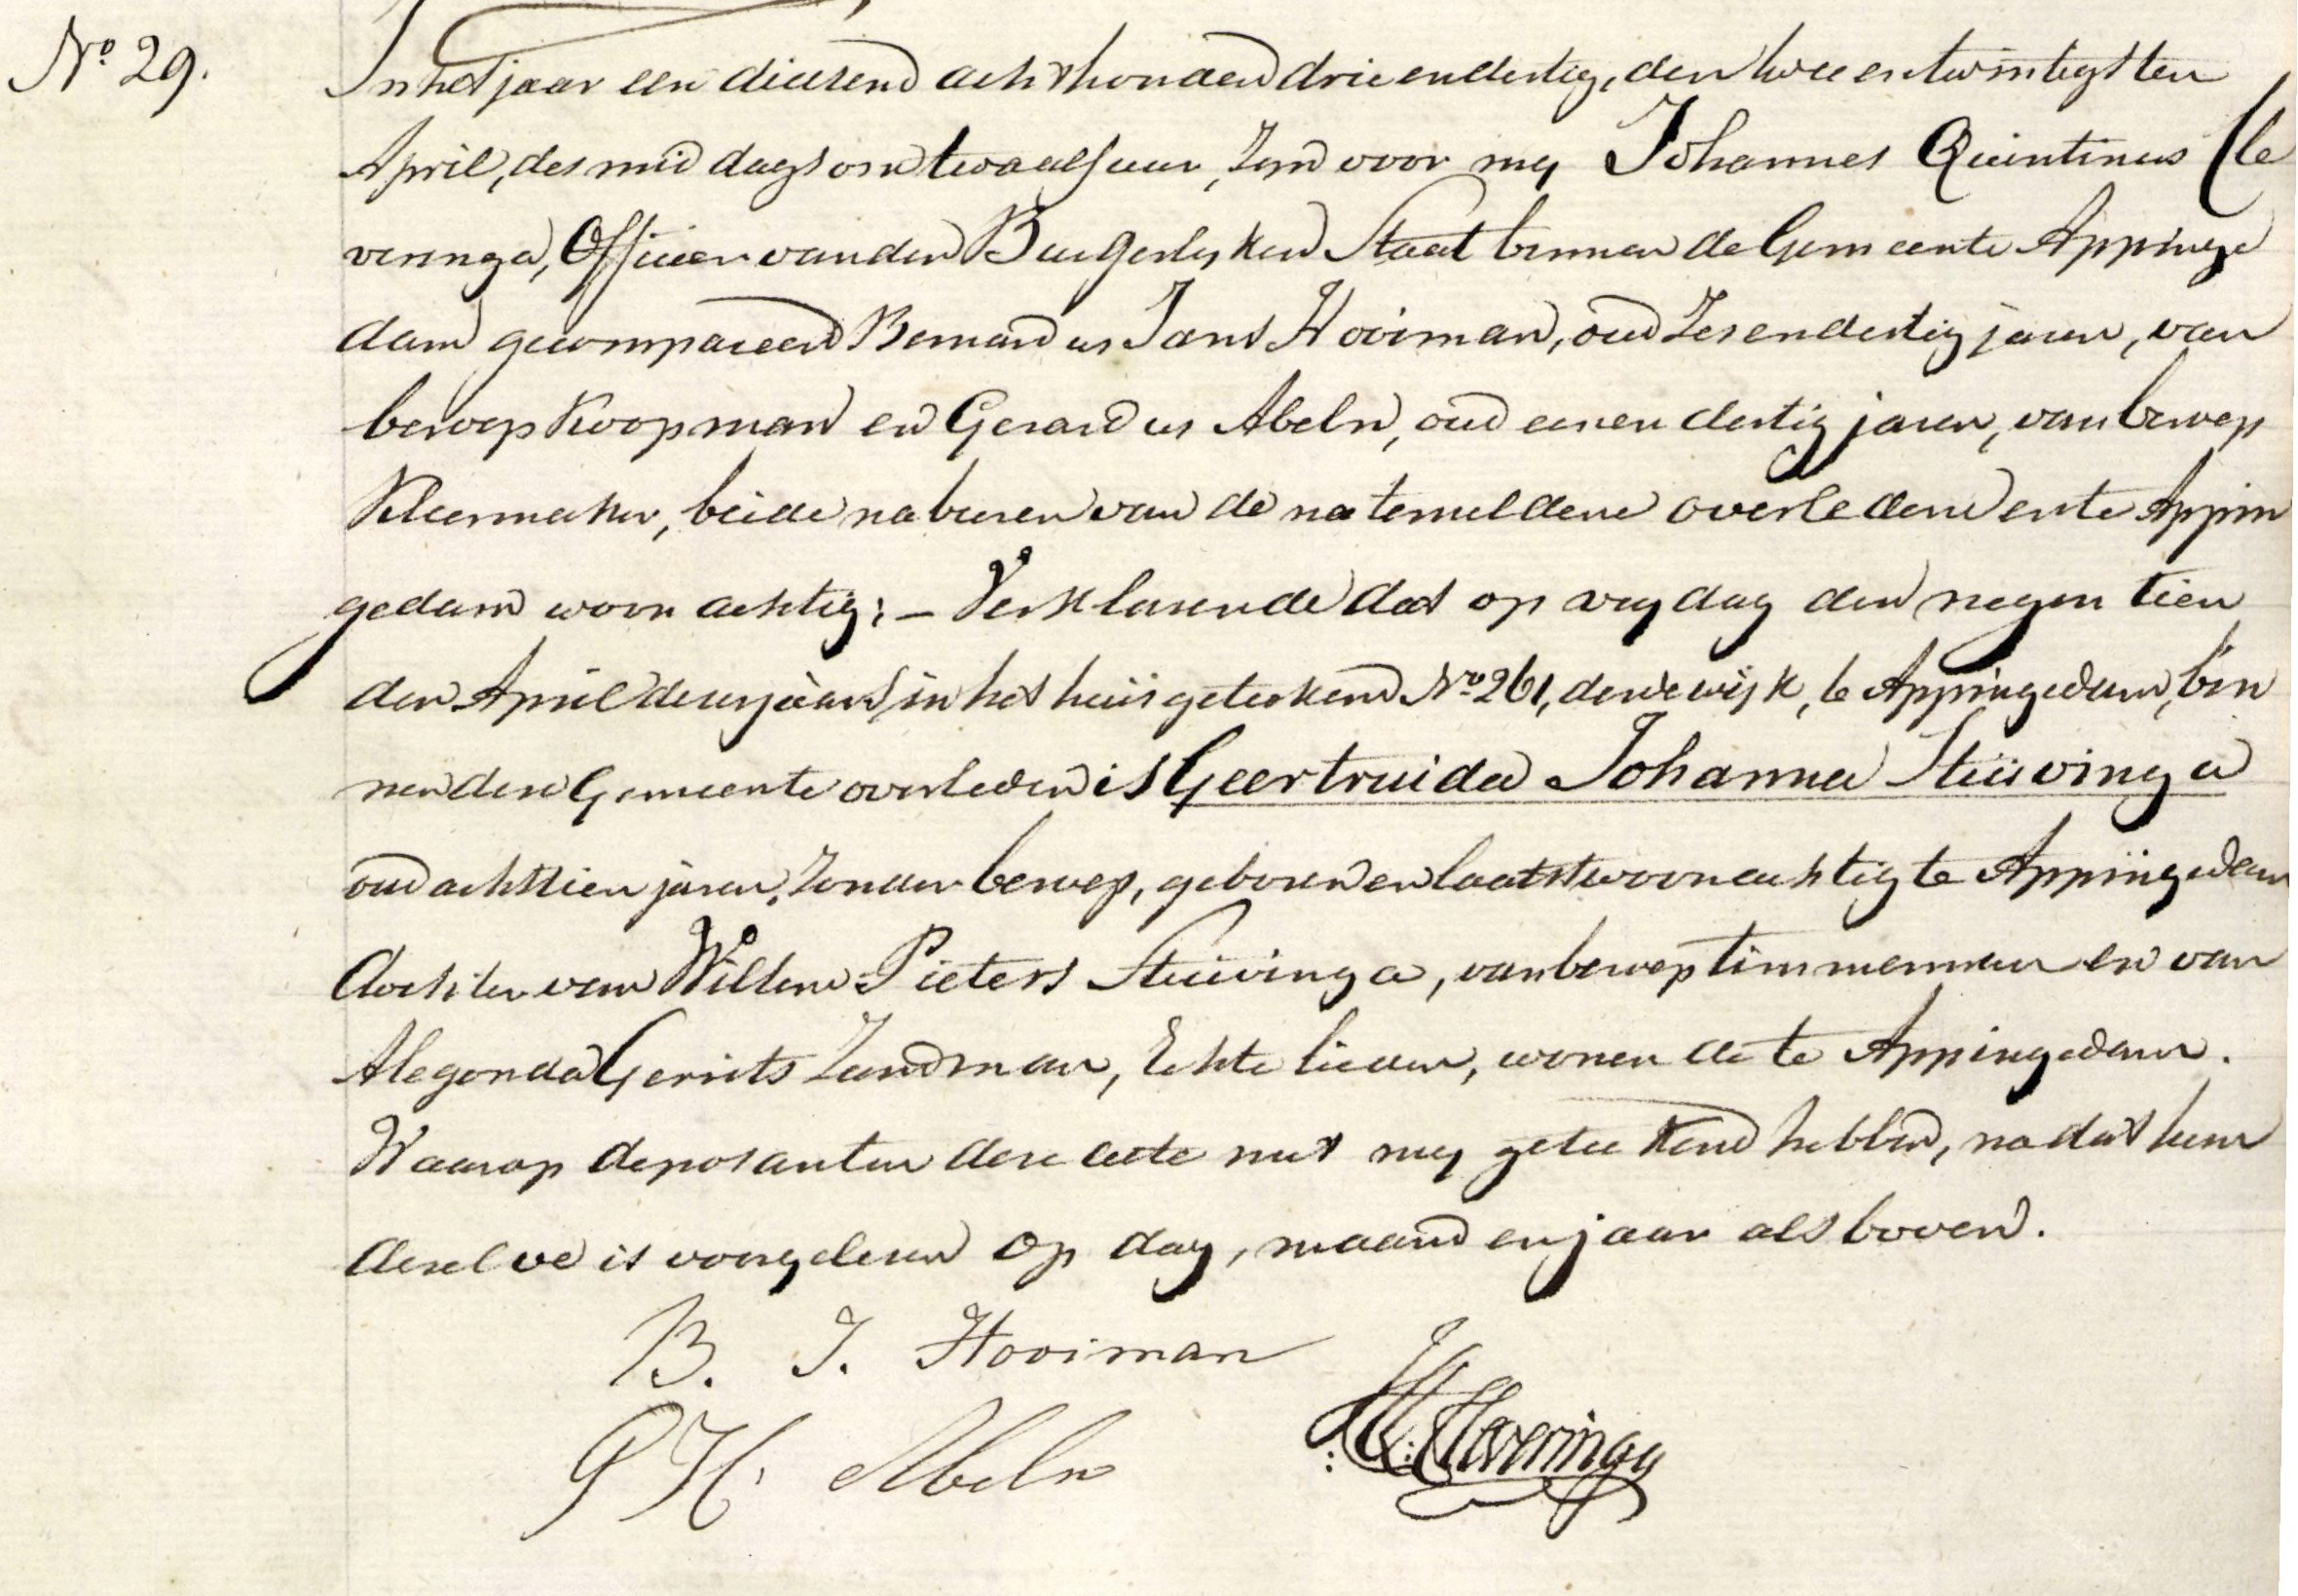 No 29.
In het jaar een duizend achthonderd drie en dertig, den twee en twintigsten
April, des middags om twaalf uur, zyn voor my Johannes Quintinus Cle
veringa, Officier van den Burgerlyken Staat binnen de Gemeente Appinge
dam gecompareerd Bernardus Jans Hooiman, oud zes en dertig jaren, van
beroep Koopman en Gerardus Abeln, oud een en dertig jaren, van beroep
Kleermaker, beide naburen van de natemeldene overledene en te Appin
gedam woonachtig; – Verklarende dat op vrydag den negentien
den April dezes jaars in het huis getekend No 261, derde wijk, te Appingedam, bin
nen deze Gemeente overleden is Geertruida Johanna Stuivinga
oud achttien jaren, zonder beroep, geboren en laatst woonachtig te Appingedam
dochter van Willem Pieters Stuivinga, van beroep timmerman en van
Alegonda Gerrits Zandman, Echte lieden, wonende te Appingedam.
Waarop deposanten deze acte met my geteekend hebben, nadat hun
dezelve is voorgelezen op dag, maand en jaar als boven.
B. J. Hooiman
G H. Abeln
J. Q. Cleveringa